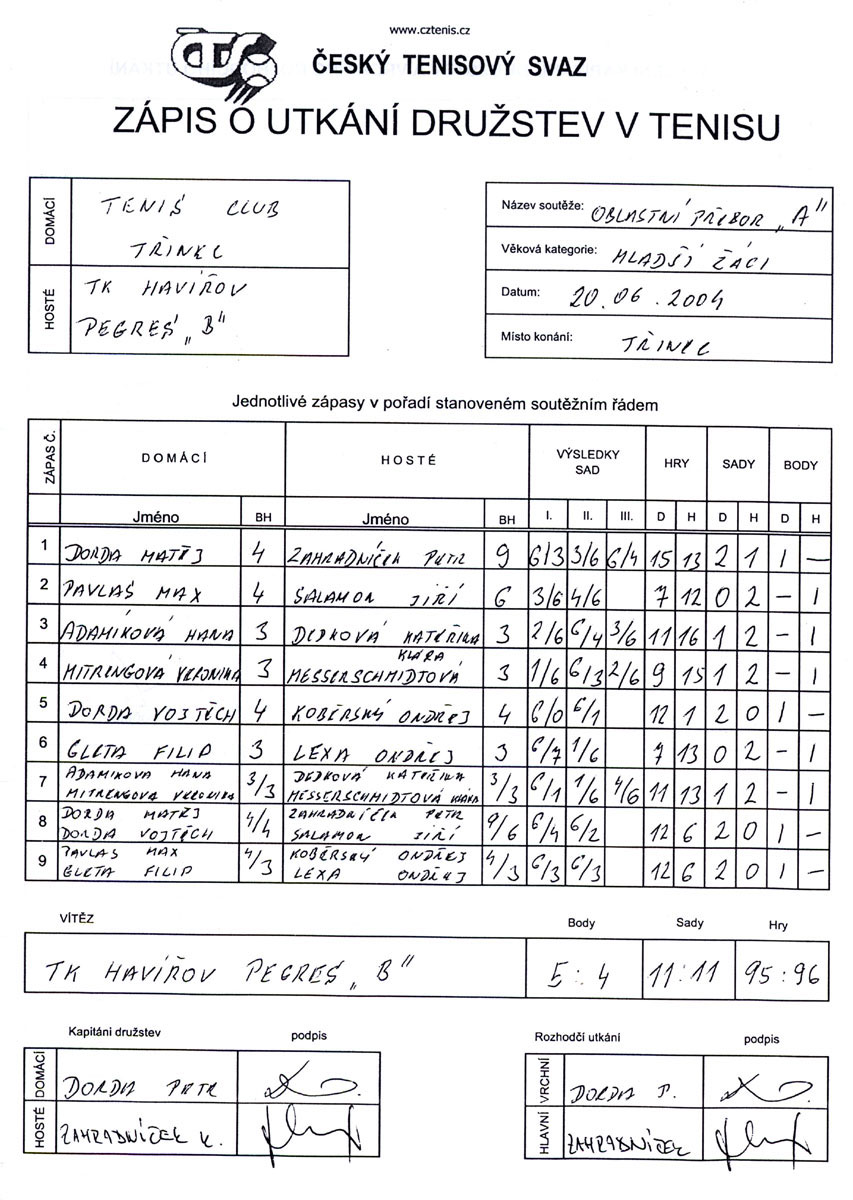 www.cztenis.cz
ČTS
ČESKÝ TENISOVÝ SVAZ
ZÁPIS O UTKÁNÍ DRUŽSTEV V TENISU
DOMÁCÍ
TENIS CLUB
TŘINEC
HOSTÉ
TK HAVÍŘOV
PEGRES „B"
Název soutěže: OBLASTNÍ PŘEBOR „A"
Věková kategorie: MLADŠÍ ŽÁCI
Datum: 20.06.2004
Místo konání: TŘINEC
Jednotlivé zápasy v pořadí stanoveném soutěžním řádem
ZÁPAS Č. DOMÁCÍ HOSTÉ VÝSLEDKY SAD HRY SADY BODY
Jméno BH Jméno BH I. II. III. D H D H D H
1 DORDA MATĚJ 4 ZAHRADNÍČEK PETR 9 6/3 3/6 6/4 15 13 2 1 1 –
2 PAVLAS MAX 4 SALAMON JIŘÍ 6 3/6 4/6 7 12 0 2 – 1
3 ADAMÍKOVÁ HANA 3 DEDKOVÁ KATEŘINA 3 2/6 6/4 3/6 11 16 1 2 – 1
4 MITRENGOVÁ VERONIKA 3 MESSERSCHMIDTOVÁ KLÁRA 3 1/6 6/3 2/6 9 15 1 2 – 1
5 DORDA VOJTĚCH 4 KOBĚRSKÝ ONDŘEJ 4 6/0 6/1 12 1 2 0 1 –
6 GLETA FILIP 3 LEXA ONDŘEJ 3 6/7 1/6 7 13 0 2 – 1
7 ADAMIKOVA HANA 3/3 DEDKOVÁ KATEŘINA 3/3 6/1 1/6 4/6 11 13 1 2 – 1
MITRENGOVA VERONIKA MESSERSCHMIDTOVÁ KLÁRA
8 DORDA MATĚJ 4/4 ZAHRADNÍČEK PETR 9/6 6/4 6/2 12 6 2 0 1 –
DORDA VOJTĚCH SALAMON JIŘÍ
9 PAVLAS MAX 4/3 KOBĚRSKÝ ONDŘEJ 4/3 6/3 6/3 12 6 2 0 1 –
GLETA FILIP LEXA ONDŘEJ
VÍTĚZ Body Sady Hry
TK HAVÍŘOV PEGRES „B" 5:4 11:11 95:96
Kapitáni družstev podpis
DOMÁCÍ DORDA PETR
HOSTÉ ZAHRADNÍČEK K.
Rozhodčí utkání podpis
VRCHNÍ DORDA P.
HLAVNÍ ZAHRADNÍČEK